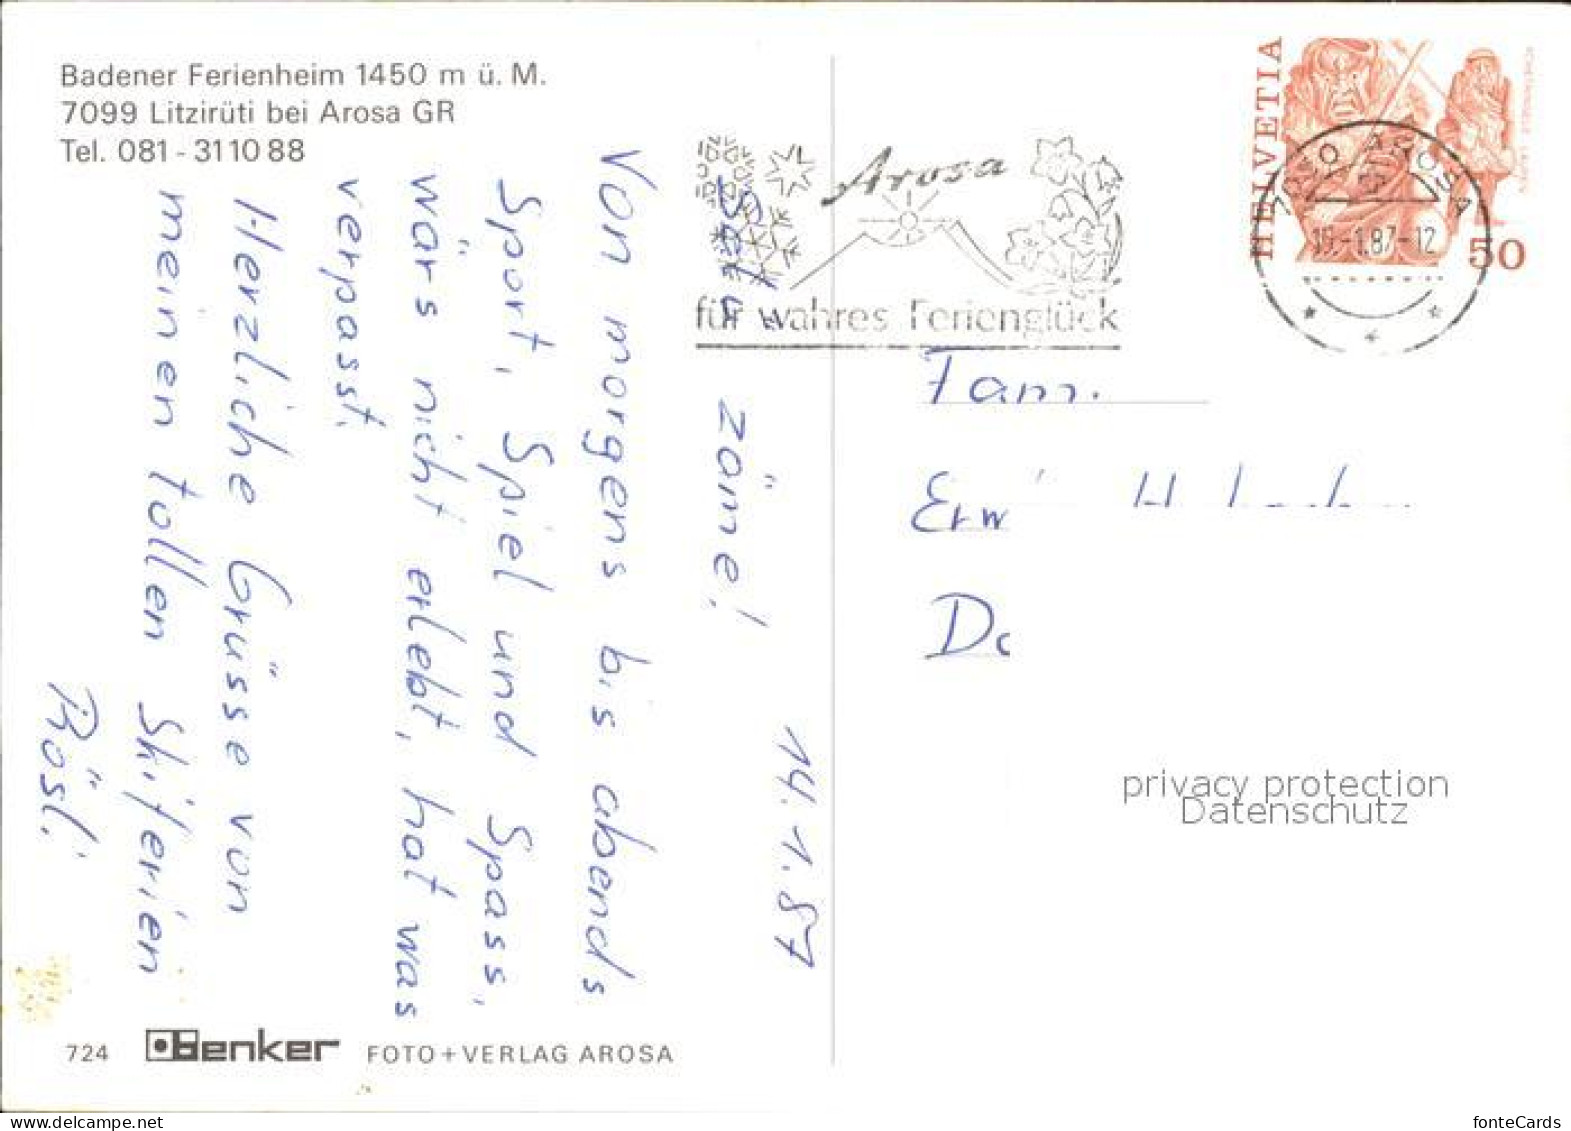 Badener Ferienheim 1450 m ü. M.
7099 Litzirüti bei Arosa GR
Tel. 081 - 31 10 88
HELVETIA
50
7050 AROSA
19.-1.87-12
Arosa
für wahres Ferienglück
14.1.87
Salü zäme!
Von morgens bis abends
Sport, Spiel und Spass,
wär's nicht erlebt, hat was
verpasst.
Herzliche Grüsse von
meinen tollen Skiferien
Rösli
Fam.
Erw
privacy protection
Datenschutz
724 benker FOTO+VERLAG AROSA
www.delcampe.net
fonteCards